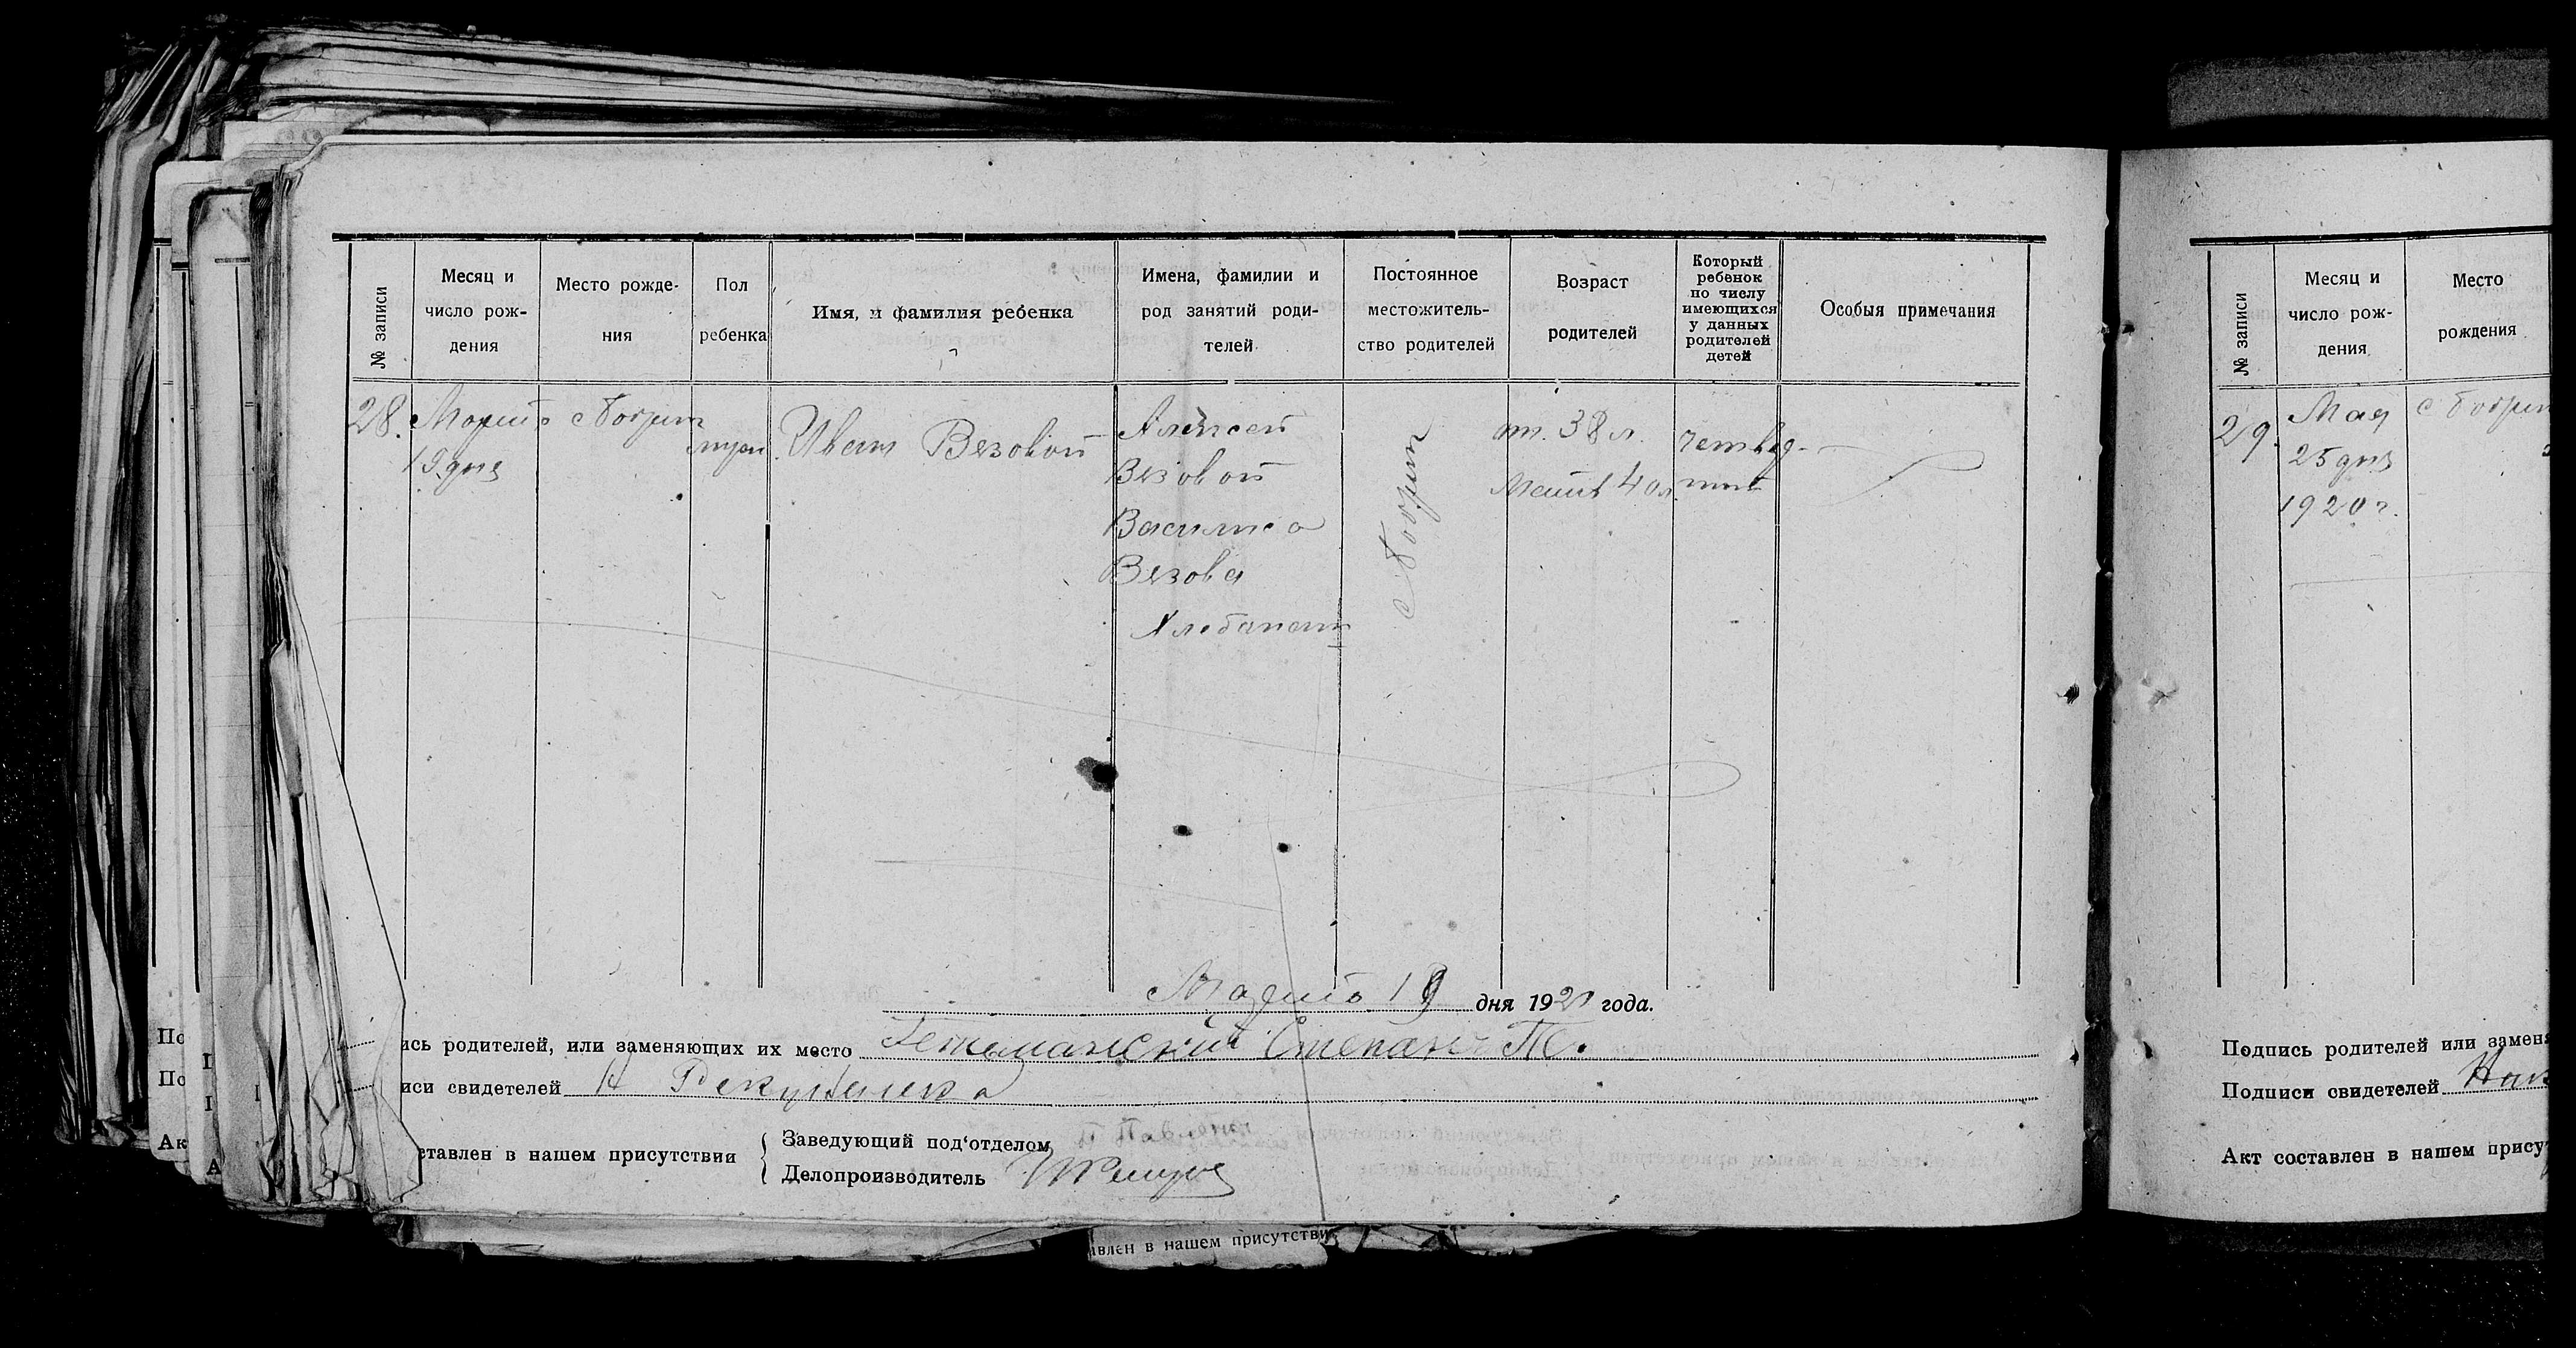 № записи
Месяц и
число рож-
дения
Место рожде-
ния
Пол
ребенка
Имя, и фамилия ребенка
Имена, фамилии и
род занятий роди-
телей
Постоянное
местожитель-
ство родителей
Возраст
родителей
Который
ребенок
по числу
имеющихся
у данных
родителей
детей
Особыя примечания
28.
19 дня
муж.
Иван Везовой
Алексей
Везовой
Василиса
Везова
от. 38 л.
Мать 40 л.
четвер-
тый
19 дня 1920 года.
ись родителей, или заменяющих их место Гетьманский Степан
иси свидетелей
ставлен в нашем присутствии
Заведующий под'отделом
Делопроизводитель
авлен в нашем присутстви
№ записи
Месяц и
число рож-
дения
Место
рождения
29.
Мая
25 дня
1920 г.
Подпись родителей или заменя
Подписи свидетелей
Акт составлен в нашем прису
По
По
Ак